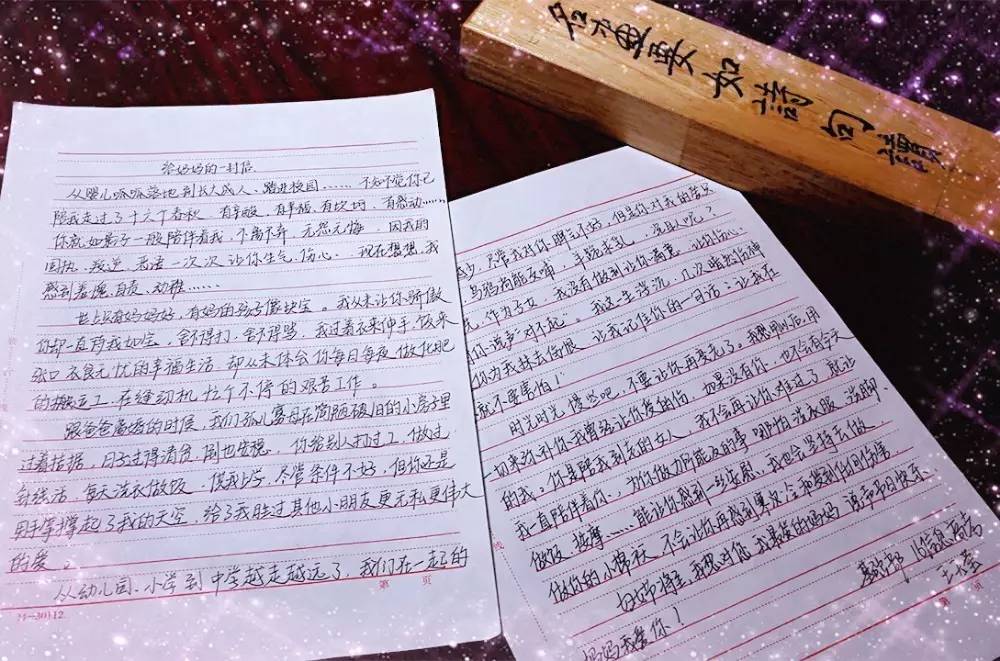 给妈妈的一封信
从婴儿呱呱落地到长大成人、踏进校园,……不知不觉你已
陪我走过了十六个春秋 有辛酸、有幸福、有坎坷、有感动……
你就如影子一般陪伴着我,不离不弃,无怨无悔。因我的
固执、叛逆、 一次次让你生气、伤心。 现在想想,我
感到羞愧、自责、 ……
世上只有妈妈好,有妈的孩子像块宝。我从未让你骄傲
你却一直为我如宝。舍不得打,舍不得骂,我过着衣来伸手,饭来
张口衣食无忧的幸福生活,却从未体会你每日每夜,做化肥
的搬运工,在缝纫机 个不停的艰苦工作。
跟爸爸离婚的时候,我们孤儿寡母在简陋破旧的小房子里
过着拮据,日子过得清贫,倒也安稳。你给别人打过工,做过
针线活,每天洗衣做饭,供我上学,尽管条件不好,但你还是
用手掌撑起了我的天空,给了我胜过其他小朋友更无私更伟大
的爱。
从幼儿园、小学到中学越走越远了,我们在一起的
第 页
24-30112
名逋要如诗句
少,尽管我对你脾气不好,但是你对我的
乌鸦尚能反哺,羊羔求乳,况且人呢?
,作为子女,我没有做到让你满意,让你伤心。
你说声“对不起”。我这一生浮沉,几次暗然伤神
你为我抹去伤痕,让我记住你的一句话:让我在
就不要害怕!
时光时光慢些吧,不要让你再变老了。我想 以后,用
来弥补你我曾经让你受的伤,如果没有你,也不会有今天
的我。你是陪我到老的女人,我不会再让你难过了,就让
我一直陪伴着你,为你做力所能及的事,哪怕洗衣服、洗脚、
做饭、按摩……能让你感到一丝安慰,我也会坚持去做,
做你的小棉袄,不会让你再感到寒冷和受到任何伤害
母亲节将至,我想对您,我最爱的妈妈,说声节日快乐
妈妈我爱你!
第 页